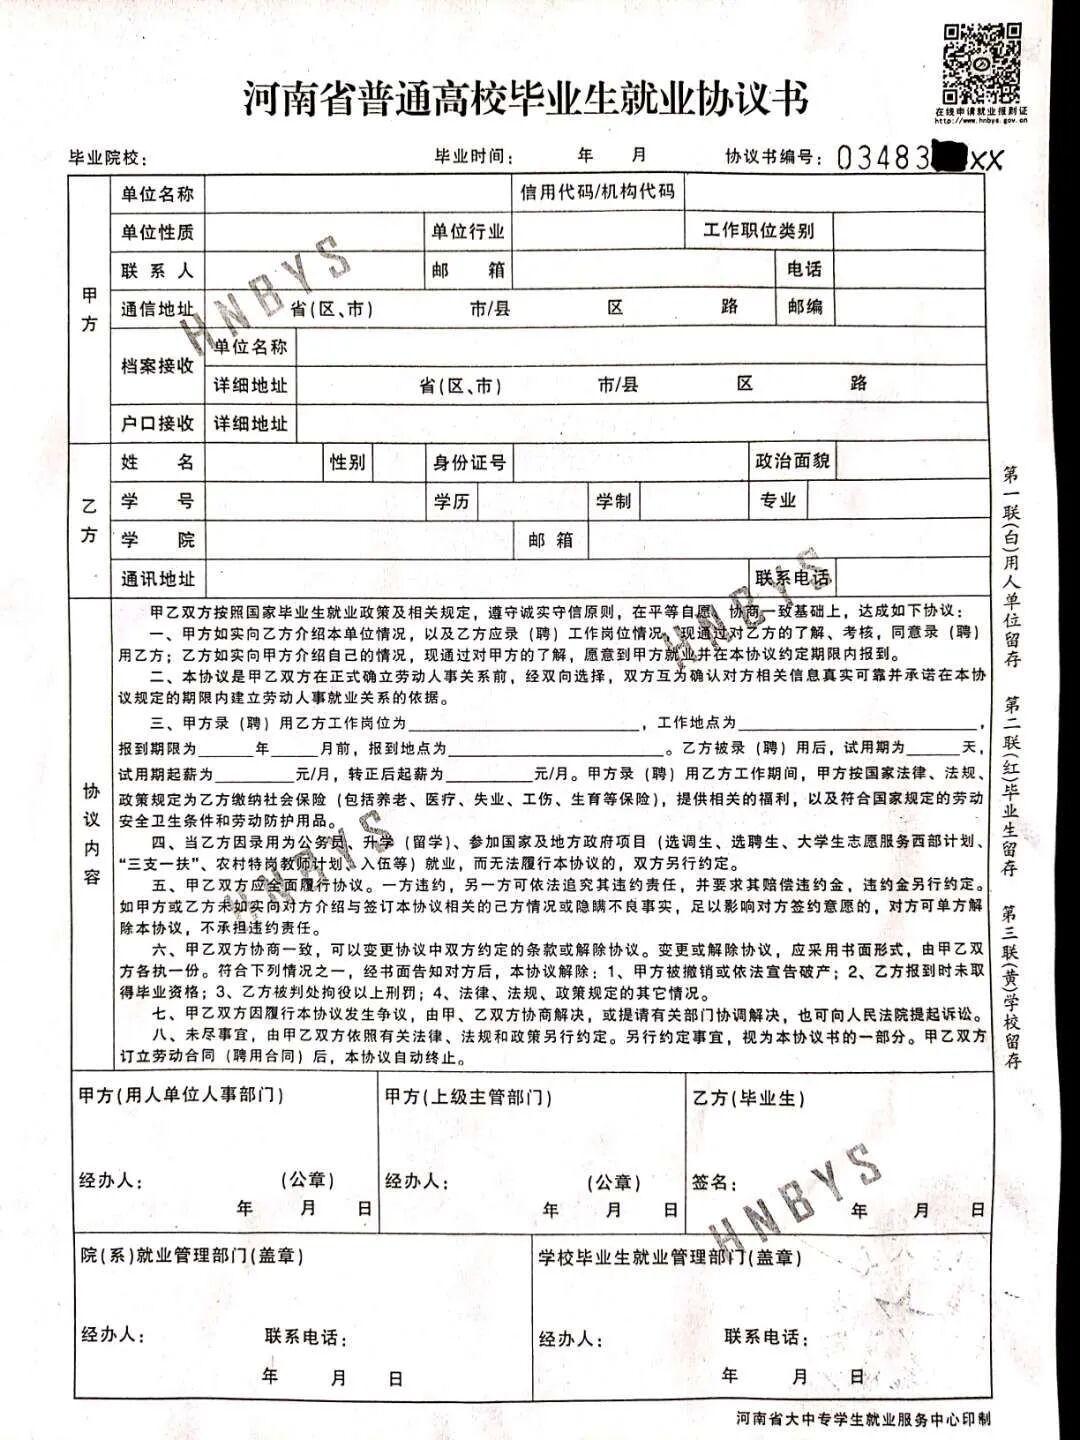 河南省普通高校毕业生就业协议书
在线申请就业报到证
http://www.hnbys.gov.cn
毕业院校： 毕业时间： 年 月 协议书编号：03483 XX
甲方
单位名称 信用代码/机构代码
单位性质 单位行业 工作职位类别
联系人 邮箱 电话
通信地址 省(区、市) 市/县 区 路 邮编
档案接收 单位名称
详细地址 省(区、市) 市/县 区 路
户口接收 详细地址
乙方
姓名 性别 身份证号 政治面貌
学号 学历 学制 专业
学院 邮箱
通讯地址 联系电话
协议内容
甲乙双方按照国家毕业生就业政策及相关规定，遵守诚实守信原则，在平等自愿、协商一致基础上，达成如下协议：
一、甲方如实向乙方介绍本单位情况，以及乙方应录（聘）工作岗位情况，现通过对乙方的了解、考核，同意录（聘）
用乙方；乙方如实向甲方介绍自己的情况，现通过对甲方的了解，愿意到甲方就业并在本协议约定期限内报到。
二、本协议是甲乙双方在正式确立劳动人事关系前，经双向选择，双方互为确认对方相关信息真实可靠并承诺在本协
议规定的期限内建立劳动人事就业关系的依据。
三、甲方录（聘）用乙方工作岗位为 ，工作地点为 ，
报到期限为 年 月前，报到地点为 。乙方被录（聘）用后，试用期为 天，
试用期起薪为 元/月，转正后起薪为 元/月。甲方录（聘）用乙方工作期间，甲方按国家法律、法规、
政策规定为乙方缴纳社会保险（包括养老、医疗、失业、工伤、生育等保险），提供相关的福利，以及符合国家规定的劳动
安全卫生条件和劳动防护用品。
四、当乙方因录用为公务员、升学（留学）、参加国家及地方政府项目（选调生、选聘生、大学生志愿服务西部计划、
“三支一扶”、农村特岗教师计划、入伍等）就业，而无法履行本协议的，双方另行约定。
五、甲乙双方应全面履行协议。一方违约，另一方可依法追究其违约责任，并要求其赔偿违约金，违约金另行约定。
如甲方或乙方未如实向对方介绍与签订本协议相关的己方情况或隐瞒不良事实，足以影响对方签约意愿的，对方可单方解
除本协议，不承担违约责任。
六、甲乙双方协商一致，可以变更协议中双方约定的条款或解除协议。变更或解除协议，应采用书面形式，由甲乙双
方各执一份。符合下列情况之一，经书面告知对方后，本协议解除：1、甲方被撤销或依法宣告破产；2、乙方报到时未取
得毕业资格；3、乙方被判处拘役以上刑罚；4、法律、法规、政策规定的其它情况。
七、甲乙双方因履行本协议发生争议，由甲、乙双方协商解决，或提请有关部门协调解决，也可向人民法院提起诉讼。
八、未尽事宜，由甲乙双方依照有关法律、法规和政策另行约定。另行约定事宜，视为本协议书的一部分。甲乙双方
订立劳动合同（聘用合同）后，本协议自动终止。
甲方(用人单位人事部门) 甲方(上级主管部门) 乙方(毕业生)
经办人： (公章) 经办人： (公章) 签名：
年 月 日 年 月 日 年 月 日
院(系)就业管理部门(盖章) 学校毕业生就业管理部门(盖章)
经办人： 联系电话： 经办人： 联系电话：
年 月 日 年 月 日
河南省大中专学生就业服务中心印制
第一联(白)用人单位留存 第二联(红)毕业生留存 第三联(黄)学校留存
HNBYS
HNBYS
HNBYS
HNBYS